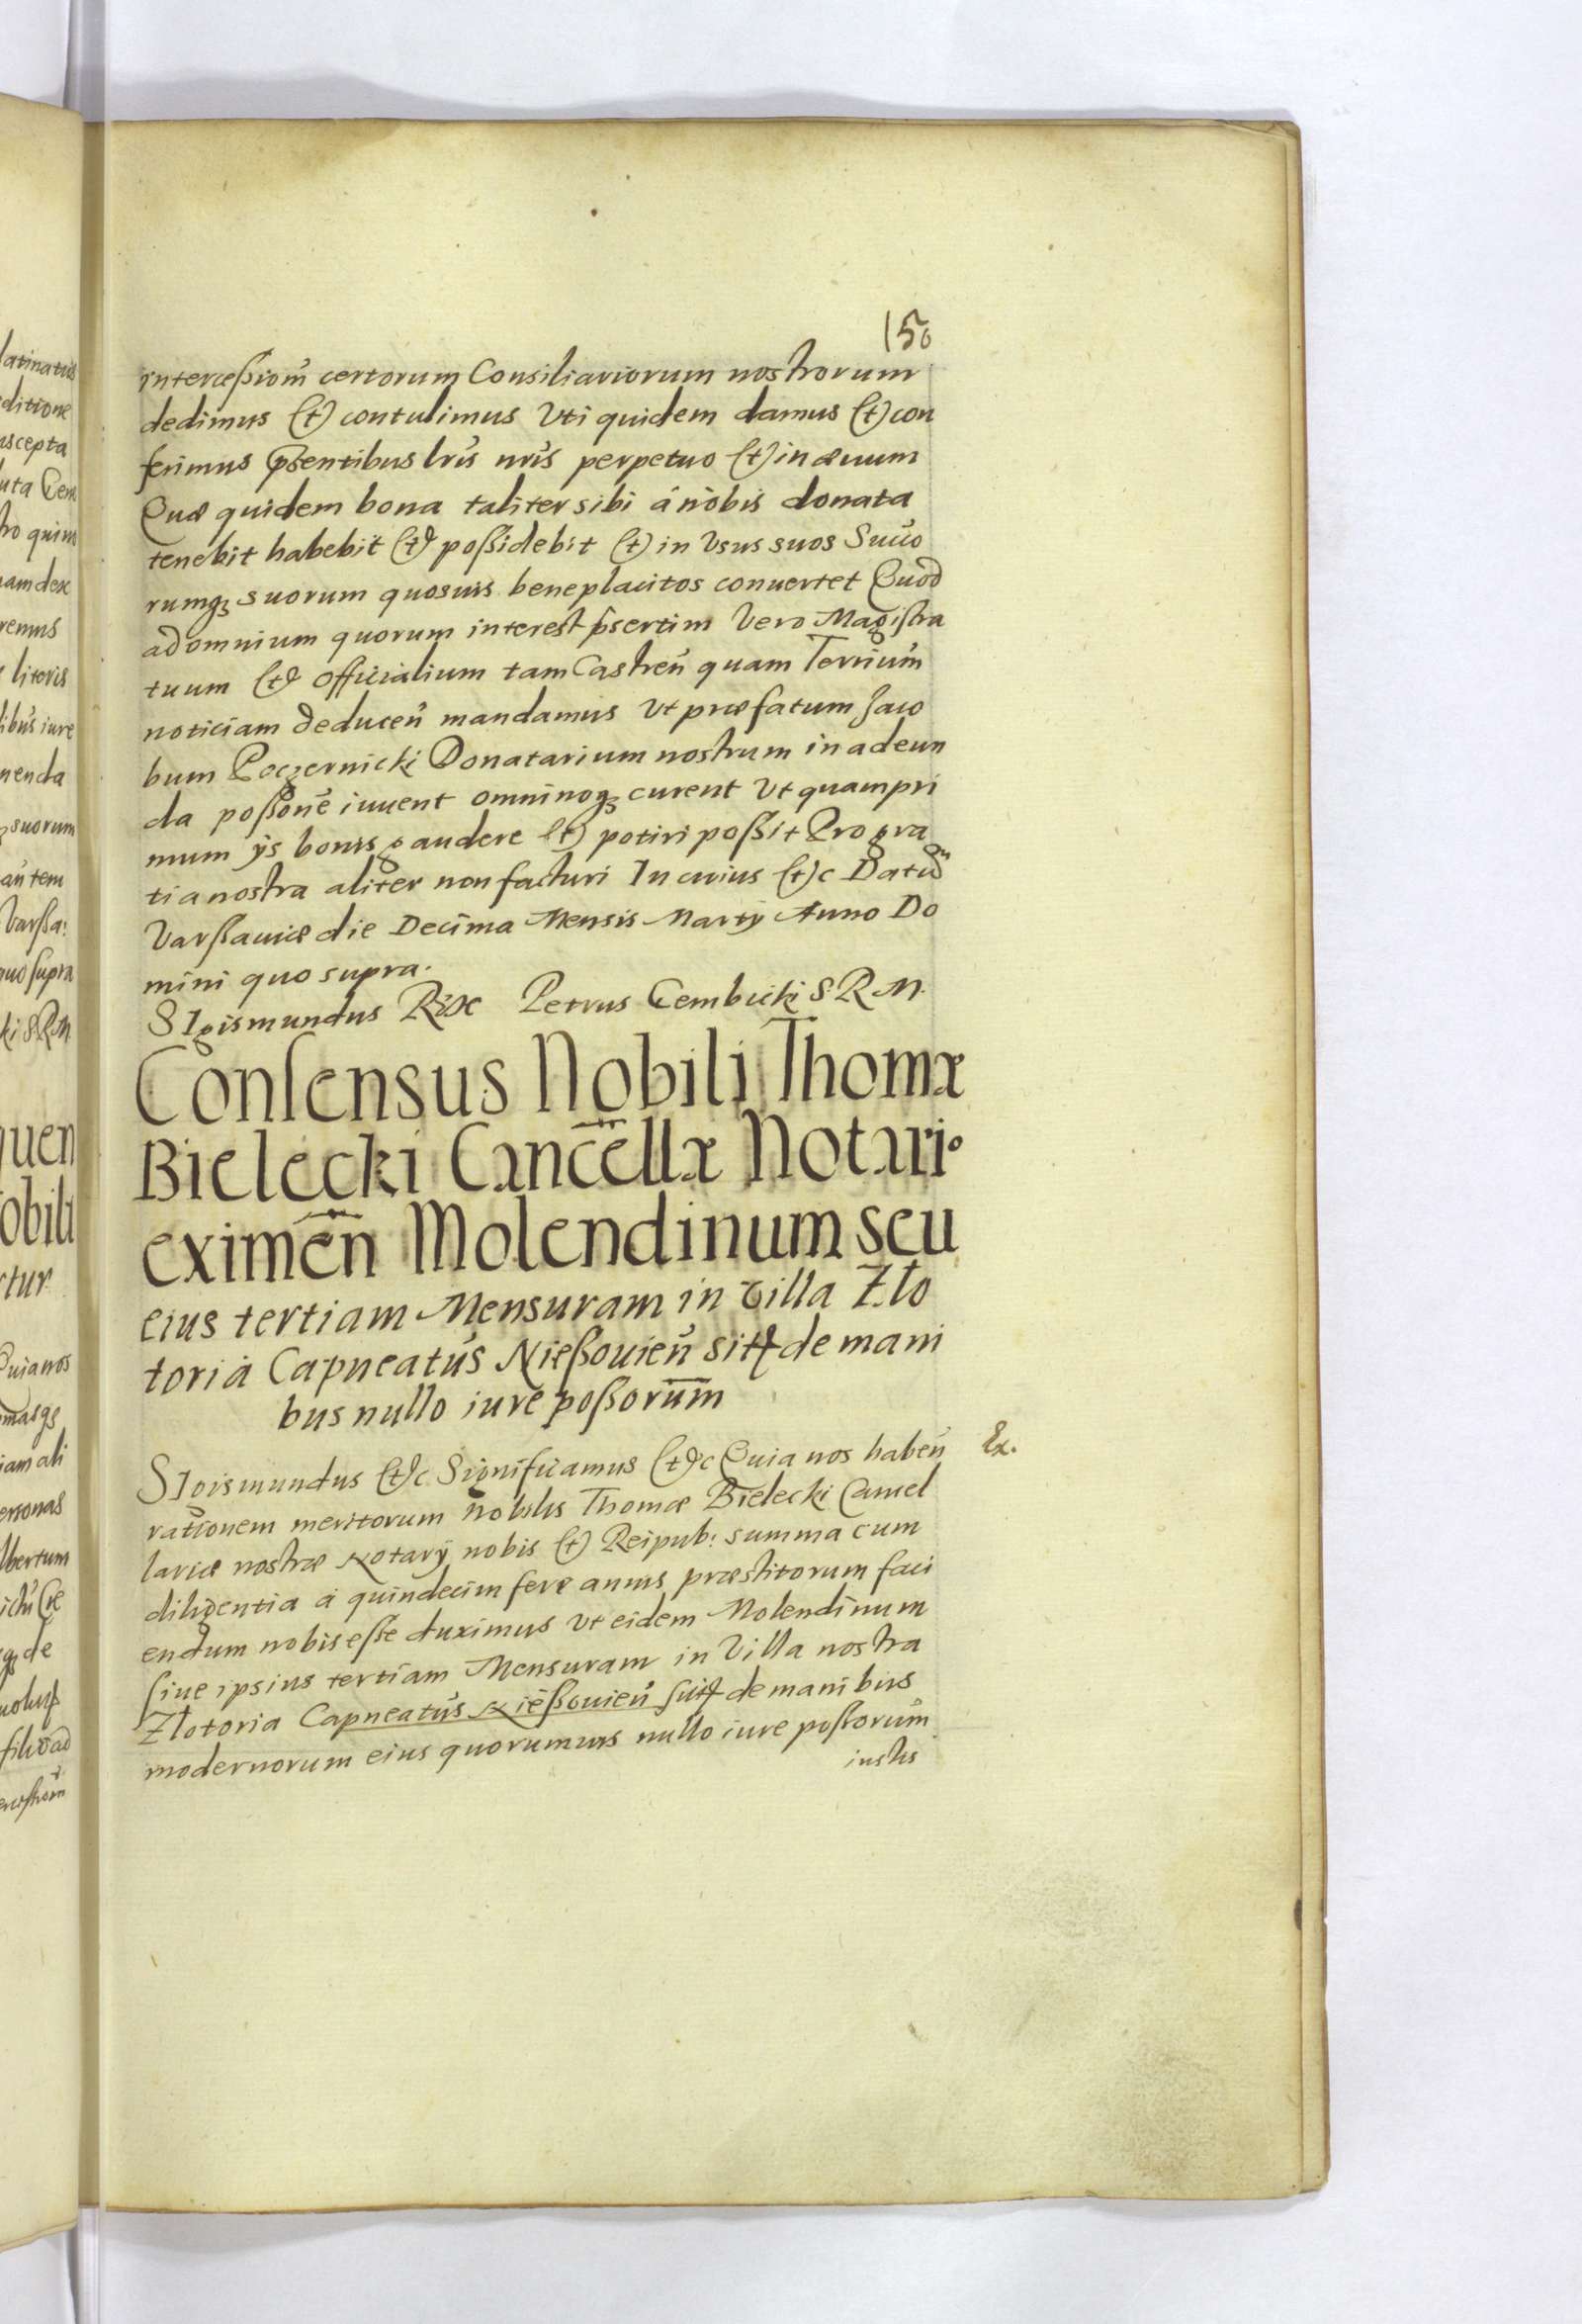 150
intercessiom̃ certorum Consiliariorum nostrorum
dedimus et contulimus Uti quidem damus et con
ferimus p̃sentibus lris nris perpetuo et in æuum
Quæ quidem bona taliter sibi á nobis donata
tenebit habebit et possidebit et in Usus suos Succo
rumq3 suorum quosuis beneplacitos conuertet Quod
ad omnium quorum interest p̃sertim Vero Magistra
tuum et officialium tam Castreñ quam Terriũm
noticiam deduceñ mandamus Ut præfatum Jaco
bum Peczernicki Donatarium nostrum in adeun
da possone iuuent omninoq3 curent Ut quampri
mum ijs bonis gaudere et potiri possit Pro gra
tia nostra aliter non facturi In cuius etc Datũ
Varssauiæ die Decima Mensis Martij Anno Do
mini quo supra.
SIgismundus Rex Petrus Tembicki S. R. M.
Consensus Nobili Thomæ
Bielecki Canc̃ellæ Notario
eximẽn Molendinum seu
eius tertiam Mensuram in Villa Zło
toria Capneatus Niessouieñ sitt de mani
bus nullo iure possorũm
SIgismundus etc Significamus etc Quia nos habeñ Ex.
rationem meritorum Nobilis Thomæ Bielecki Cancel
lariæ nostræ Notarij nobis et Reipub: summa cum
diligentia á quindecim fere annis præstitorum faci
endum nobis esse duximus Ut eidem Molendinum
siue ipsius tertiam Mensuram in Villa nostra
Złotoria Capneatus Niessouieñ suit de manibus
modernorum eius quorumuis nullo iure possorũm
iustis